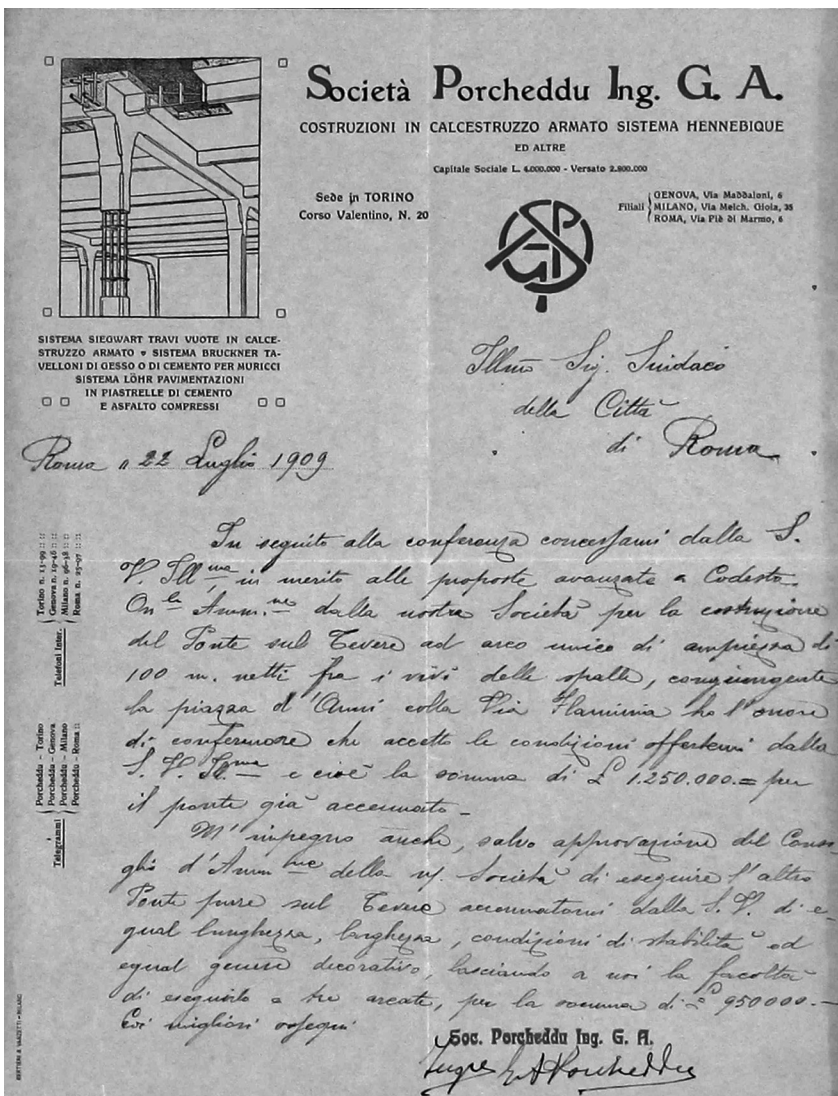 Società Porcheddu Ing. G. A.
COSTRUZIONI IN CALCESTRUZZO ARMATO SISTEMA HENNEBIQUE
ED ALTRE
Capitale Sociale L. 4.000.000 - Versato 2.800.000
Sede in TORINO
Corso Valentino, N. 20
Filiali
GENOVA, Via Maddaloni, 6
MILANO, Via Melch. Gioia, 35
ROMA, Via Piè di Marmo, 6
SISTEMA SIEGWART TRAVI VUOTE IN CALCE-
STRUZZO ARMATO SISTEMA BRUCKNER TA-
VELLONI DI GESSO O DI CEMENTO PER MURICCI
SISTEMA LÖHR PAVIMENTAZIONI
IN PIASTRELLE DI CEMENTO
E ASFALTO COMPRESSI
Illmo Sig. Sindaco
della Città
di Roma
Roma 22 Luglio 1909
Telefoni Inter.
Torino n. 13-99
Genova n. 19-46
Milano n. 96-38
Roma n. 25-97
Telegrammi
Porcheddu - Torino
Porcheddu - Genova
Porcheddu - Milano
Porcheddu - Roma
In seguito alla conferenza concessami dalla S.
V. Ill.ma in merito alle proposte avanzate a Codesta
On.le Amm.ne dalla nostra Società per la costruzione
del Ponte sul Tevere ad arco unico di ampiezza di
100 m. netti fra i vivi delle spalle, congiungente
la piazza d'Armi colla Via Flaminia ho l'onore
di confermare che accetto le condizioni offertemi dalla
S. V. Ill.ma e cioè la somma di £ 1.250.000.= per
il ponte già accennato.
M'impegno anche, salvo approvazione del Consi-
glio d'Amm.ne della n/ Società di eseguire l'altro
Ponte pure sul Tevere accennatomi dalla S. V. di e-
gual lunghezza, larghezza, condizioni di stabilità ed
egual genere decorativo, lasciando a noi la facoltà
di eseguirlo a tre arcate, per la somma di £ 950000.-
Coi migliori ossequi
Soc. Porcheddu Ing. G. A.
Ingre G A Porcheddu
BERTIERI & VANZETTI - MILANO